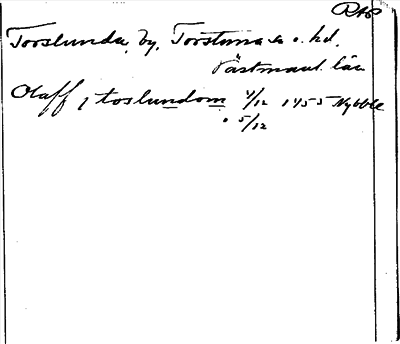 RAp
Torslunda, by, Torstuna sn o. hd.
Västmanl. län
Olaff j toslundom 4/12 1455 Nybble
" 5/12